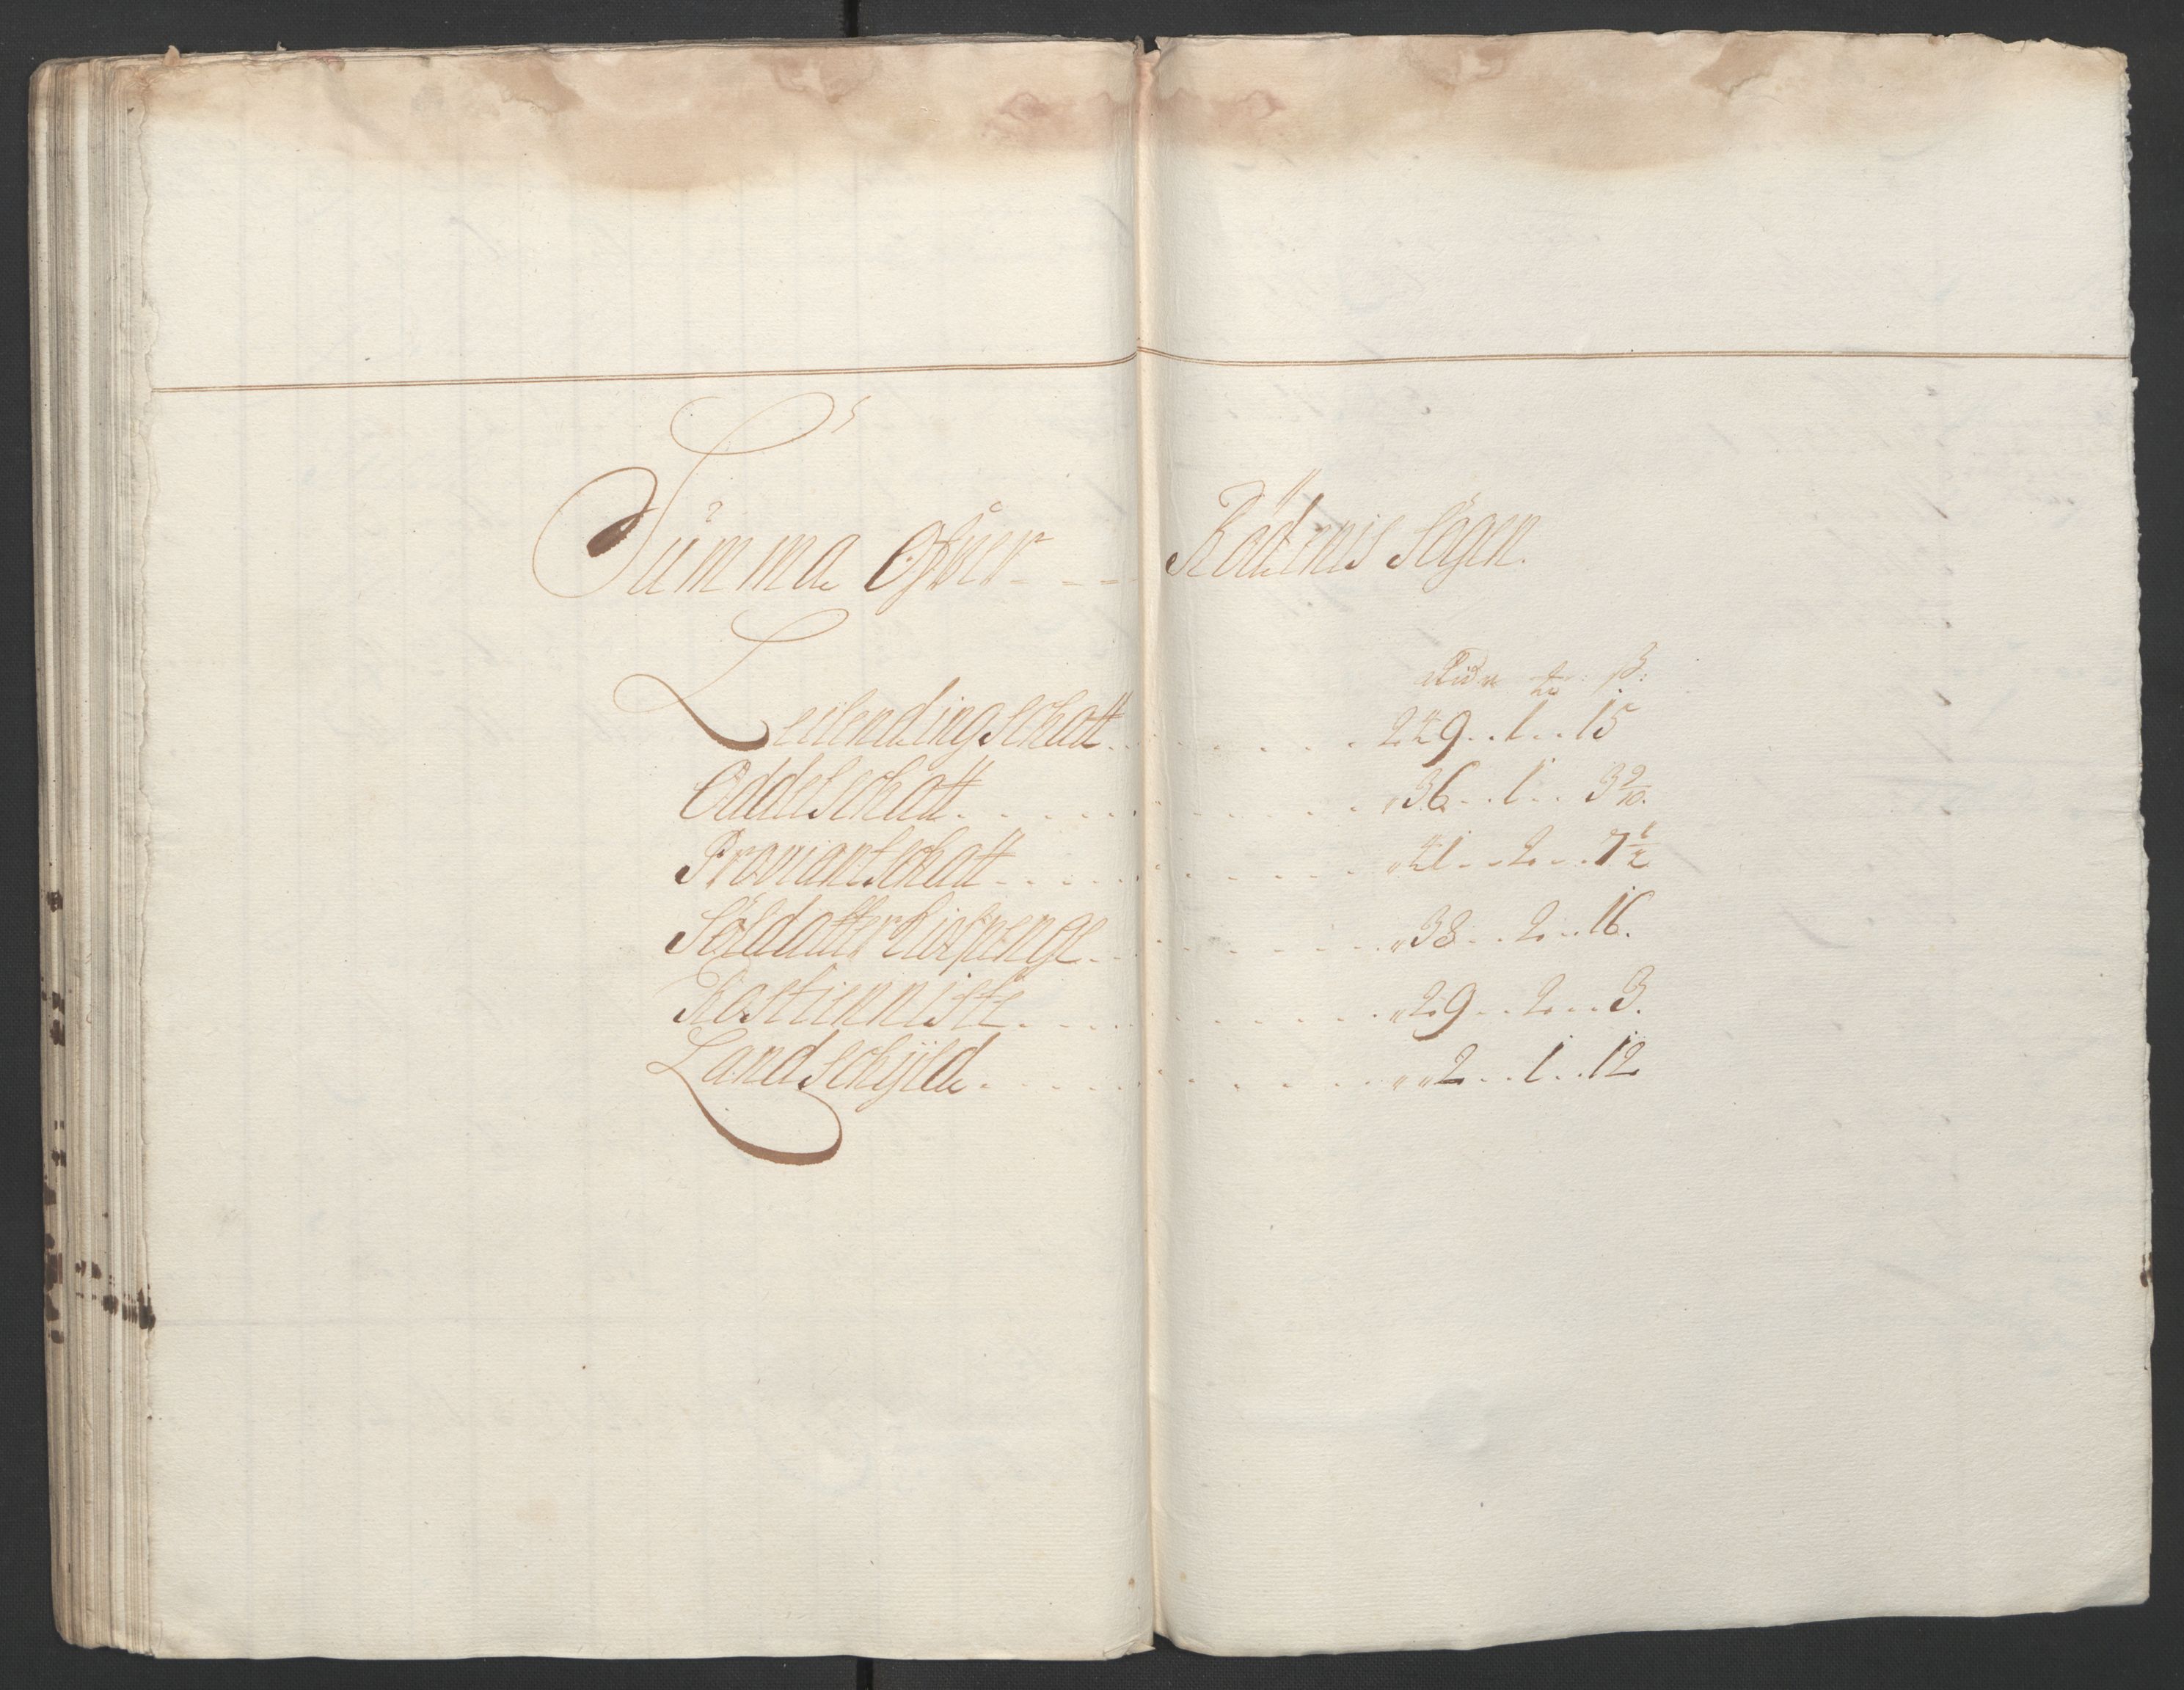 Summa Ofver - - - Rödenis Sogen.
Ridr ₰ ß:
Leilendingschatt . . . 249 . . 1 . . 15
Oddelschatt . . . 36 . . 1 . . 3 9/10.
Proviantschatt . . . 41 . . 2 . . 7 1/2
Soldatter . . . 38 . . 2 . . 16.
Rostienniste . . . 29 . . 2 . . 3.
Landschyld . . . 2 . . 1 . . 12